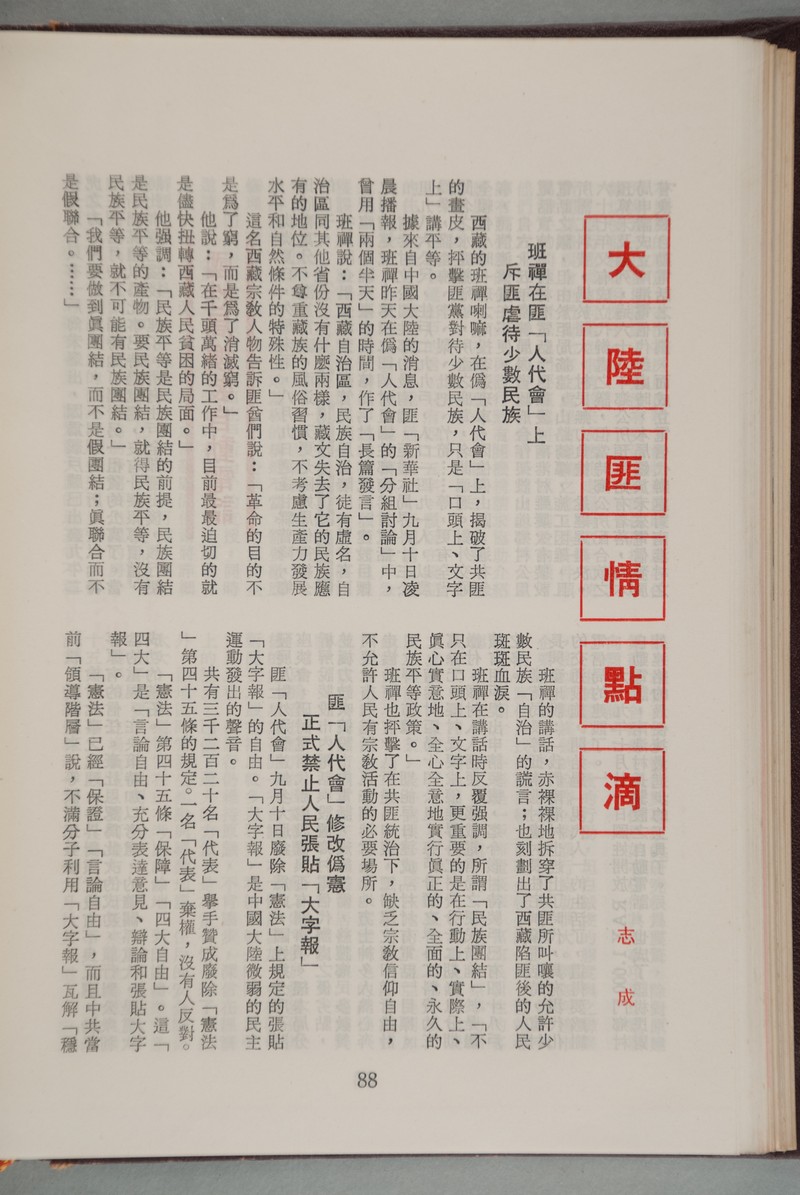 大陸匪情點滴
志成
班禪在匪「人代會」上
斥匪虐待少數民族
西藏的班禪喇嘛，在僞「人代會」上，揭破了共匪
的畫皮，抨擊匪黨對待少數民族，只是「口頭上、文字
上」講平等。
據來自中國大陸的消息，匪「新華社」九月十日凌
晨播報，班禪昨天在僞「人代會」的「分組討論」中，
曾用「兩個半天」的時間，作了「長篇發言」。
班禪說：「西藏自治區，民族自治，徒有虛名，自
治區同其他省份沒有什麼兩樣，藏文失去了它的民族應
有的地位。不尊重藏族的風俗習慣，不考慮生產力發展
水平和自然條件的特殊性。」
這名西藏宗教人物告訴匪酋們說：「革命的目的不
是爲了窮，而是爲了消滅窮。」
他說：「在千頭萬緒的工作中，目前最最迫切的就
是儘快扭轉西藏人民貧困的局面。」
他强調：「民族平等是民族團結的前提，民族團結
是民族平等的產物。要民族團結，就得民族平等，沒有
民族平等，就不可能有民族團結。」
「我們要做到眞團結，而不是假團結；眞聯合而不
是假聯合。……」
班禪的講話，赤裸裸地拆穿了共匪所叫嚷的允許少
數民族「自治」的謊言；也刻劃出了西藏陷匪後的人民
斑斑血淚。
班禪在講話時反覆强調，所謂「民族團結」，「不
只在口頭上、文字上，更重要的是在行動上、實際上、
眞心實意地、全心全意地實行眞正的、全面的、永久的
民族平等政策。」
班禪也抨擊了在共匪統治下，缺乏宗教信仰自由，
不允許人民有宗教活動的必要場所。
匪「人代會」修改僞憲
正式禁止人民張貼「大字報」
匪「人代會」九月十日廢除「憲法」上規定的張貼
「大字報」的自由。「大字報」是中國大陸微弱的民主
運動發出的聲音。
共有三千二百二十名「代表」舉手贊成廢除「憲法
」第四十五條的規定。一名「代表」棄權，沒有人反對。
「憲法」第四十五條「保障」「四大自由」。這「
四大」是「言論自由、充分表達意見、辯論和張貼大字
報」。
「憲法」已經「保證」「言論自由」，而且中共當
前「領導階層」說，不滿分子利用「大字報」瓦解「穩
88